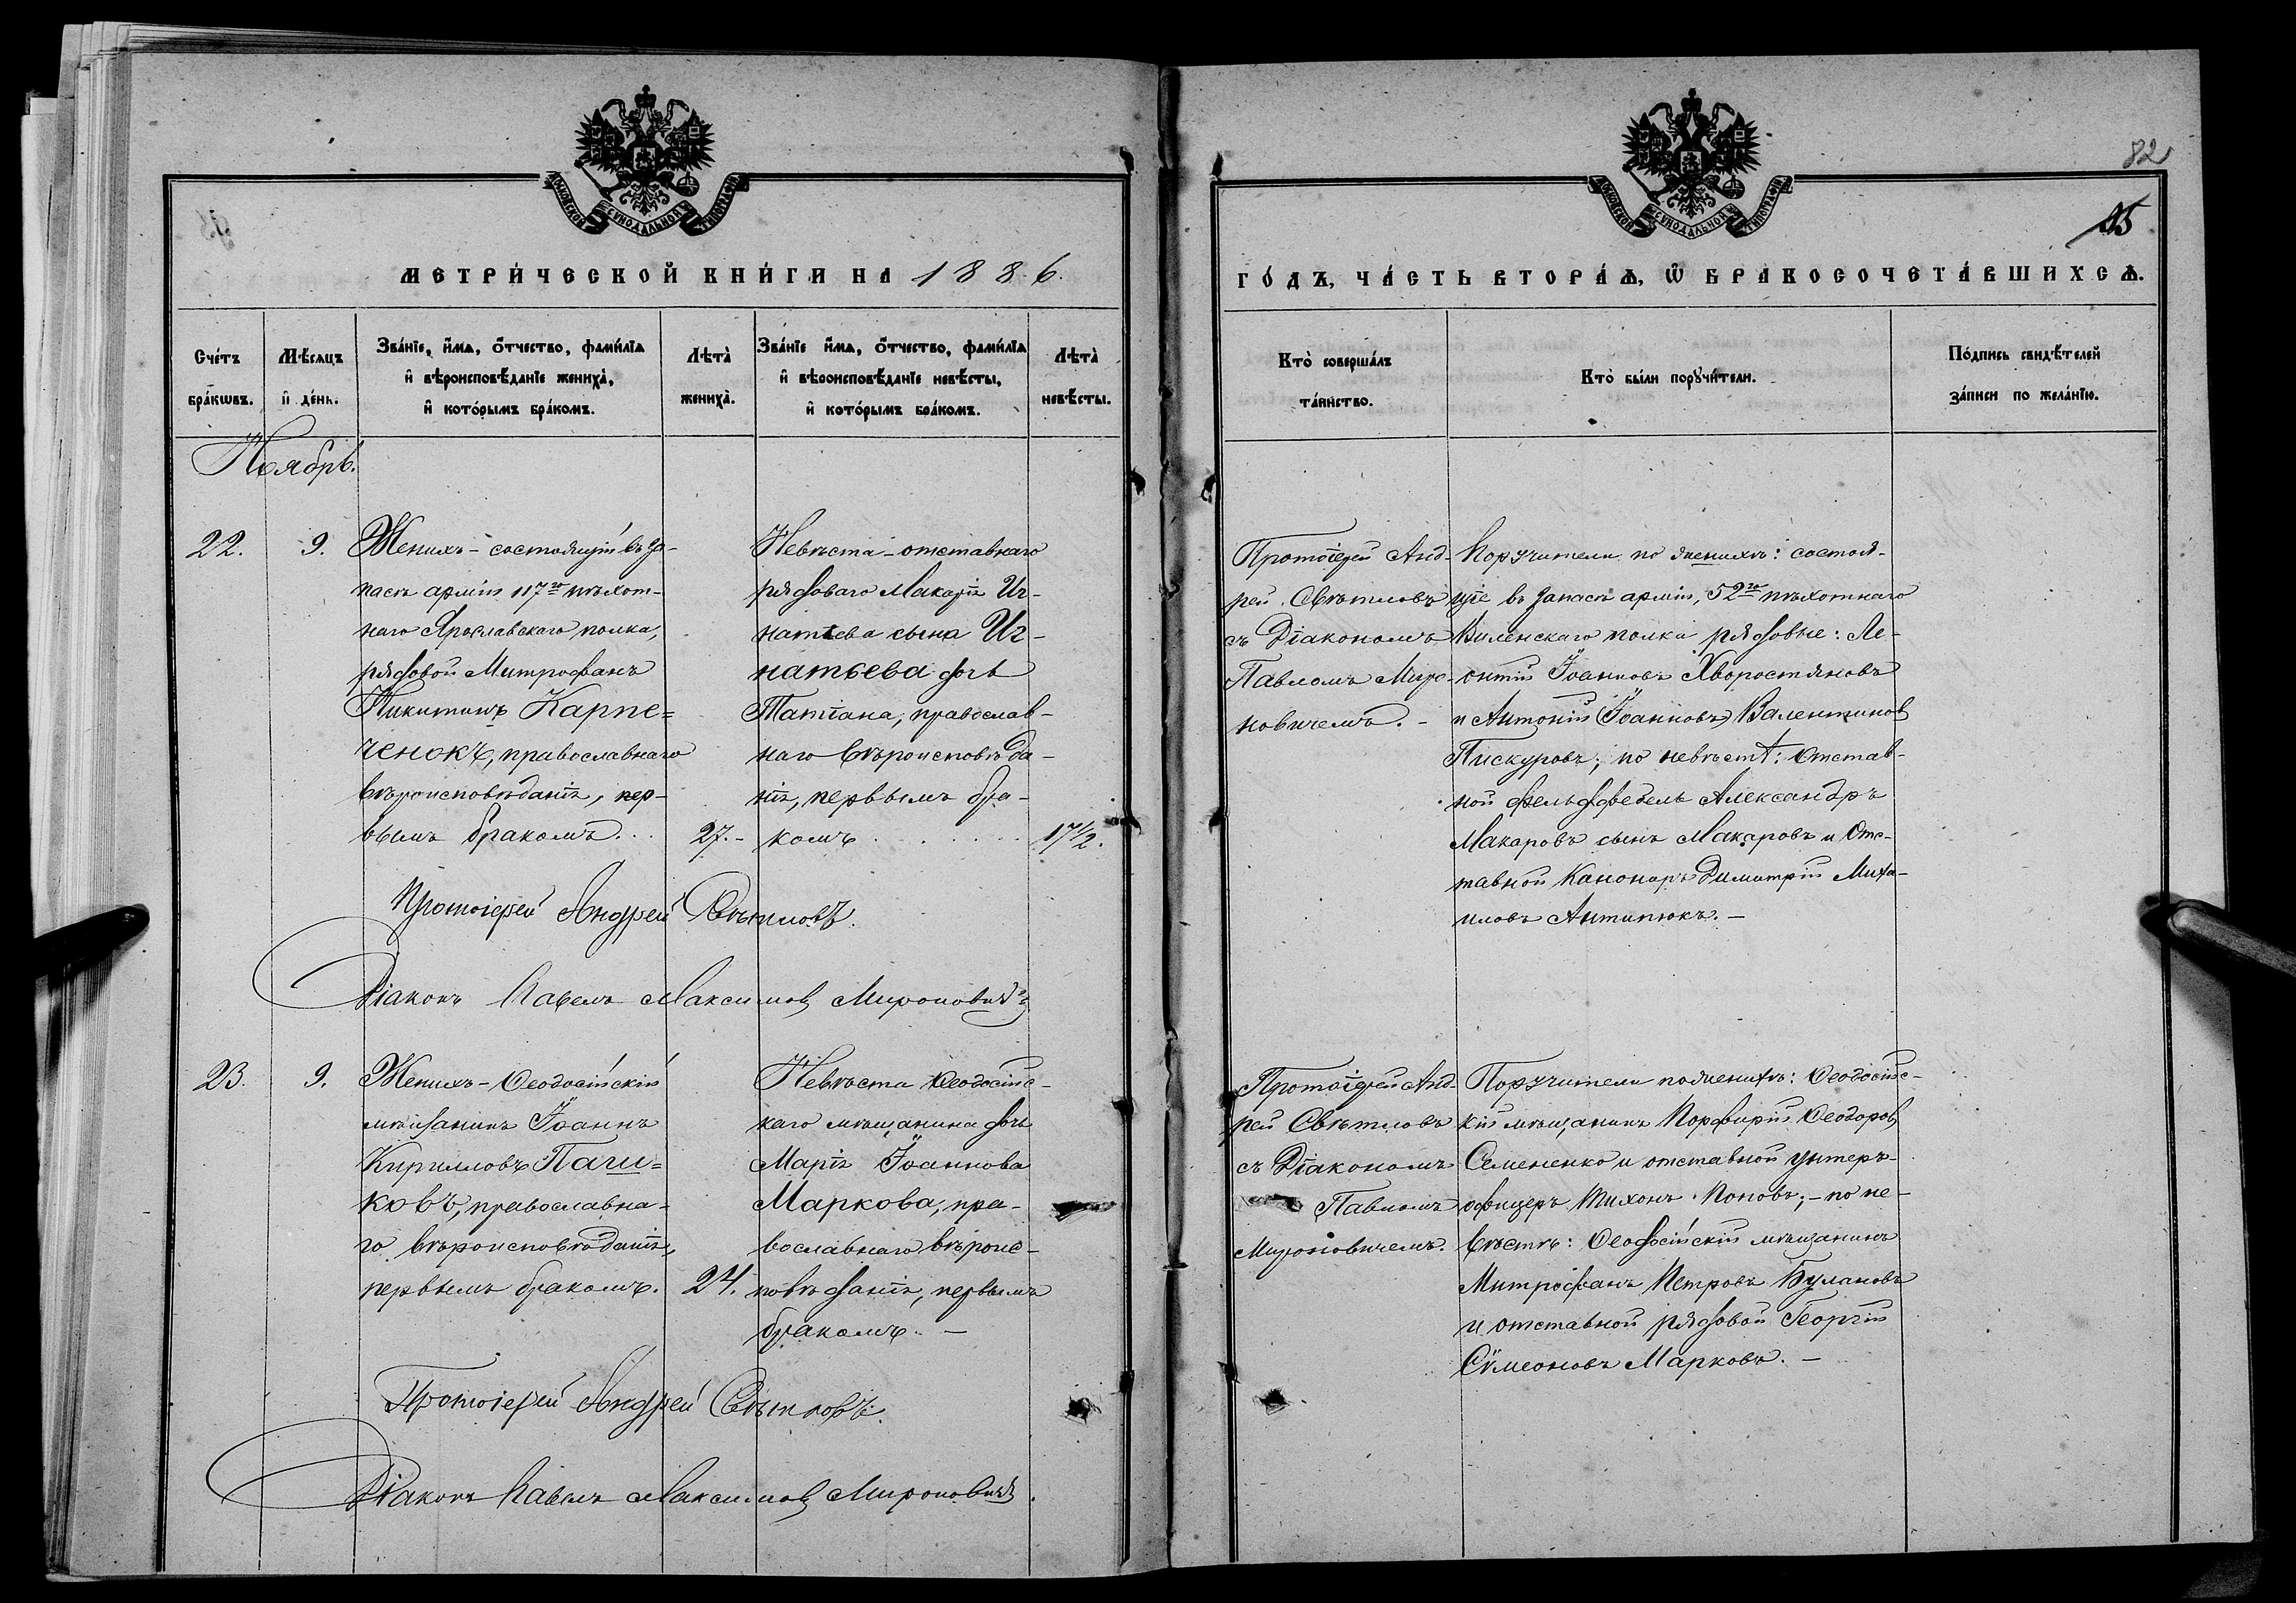 82
95
МОСКОВСКОЙ СѴНОДАЛЬНОЙ ТИПОГРАФІИ
МОСКОВСКОЙ СѴНОДАЛЬНОЙ ТИПОГРАФІИ
МЕТРИ́ЧЕСКОЙ КНИ́ГИ НА 1886.
ГО́ДЪ, ЧА́СТЬ ВТОРА́Ѧ, Ѡ҆ БРАКОСОЧЕТА́ВШИХСѦ.
Сче́тъ
бра́кѡвъ.
Мѣ́сяцъ
и҆ де́нь.
Зва́нїе, и҆́мѧ, ѻ҆́тчество, фами́лїѧ
и҆ вѣроисповѣ́данїе жениха̀,
и҆ кото́рымъ бра́комъ.
Лѣта̀
жениха̀.
Зва́нїе и҆́мѧ, ѻ҆́тчество, фами́лїѧ
и҆ вѣроисповѣ́данїе невѣ́сты,
и҆ кото́рымъ бра́комъ.
Лѣта̀
невѣ́сты.
Кто̀ соверша́лъ
та́инство.
Кто̀ бы́ли порꙋчи́тели.
По́дпись свидѣ́телей
за́писи по жела́нїю.
Ноябрь.
22.
9.
Женихъ - состоящій въ за-
пасѣ арміи 117го пѣхот-
наго Ярославскаго полка,
рядовой Митрофанъ
Никитинъ Карпе=
ченокъ, православнаго
вѣроисповѣданія, пер-
вымъ бракомъ...
27.-
Невѣста - отставнаго
рядоваго Макарія Иг-
натьева сына Иг-
натьева дочь
Татіана, православ-
наго вѣроисповѣда-
нія, первымъ бра-
комъ
17 1/2.
Протоіерей Анд-
рей Свѣтловъ
съ Діакономъ
Павломъ Миро-
новичемъ. -
Поручители по женихѣ: состоя-
щіе въ запасѣ арміи, 52го пѣхотнаго
Виленскаго полка рядовые: Ле-
онтій Іоанновъ Хворостяновъ
и Антоній (Іоанновъ) Валентиновъ
Пискуровъ; по невѣстѣ: отстав-
ной фельдфебель Александръ
Макаровъ сынъ Макаровъ и отс-
тавной Канониръ Димитрій Миха-
иловъ Антипюкъ. -
Протоіерей Андрей Свѣтловъ.
Діаконъ Павелъ Максимовъ Мироновичъ
23.
9.
Женихъ - Ѳеодосійскій
мѣщанинъ Іоаннъ
Кирилловъ Пачи=
ковъ, православна-
го вѣроисповѣданія,
первымъ бракомъ.
24.
Невѣста Ѳеодосійс-
каго мѣщанина дочь
Марія Іоаннова
Маркова, пра-
вославнаго вѣроис-
повѣданія, первымъ
бракомъ. -
Протоіерей Анд-
рей Свѣтловъ
съ Діакономъ
Павломъ
Мироновичемъ.
Поручители по женихѣ: Ѳеодосійс-
кій мѣщанинъ Порфирій Ѳеодоровъ
Семененко и отставной унтеръ-
офицеръ Тихонъ Поповъ; - по не-
вѣстѣ: Ѳеодосійскій мѣщанинъ
Митрофанъ Петровъ Булановъ
и отставной рядовой Георгій
Сѵмеоновъ Марковъ. -
Протоіерей Андрей Свѣтловъ.
Діаконъ Павелъ Максимовъ Мироновичъ.